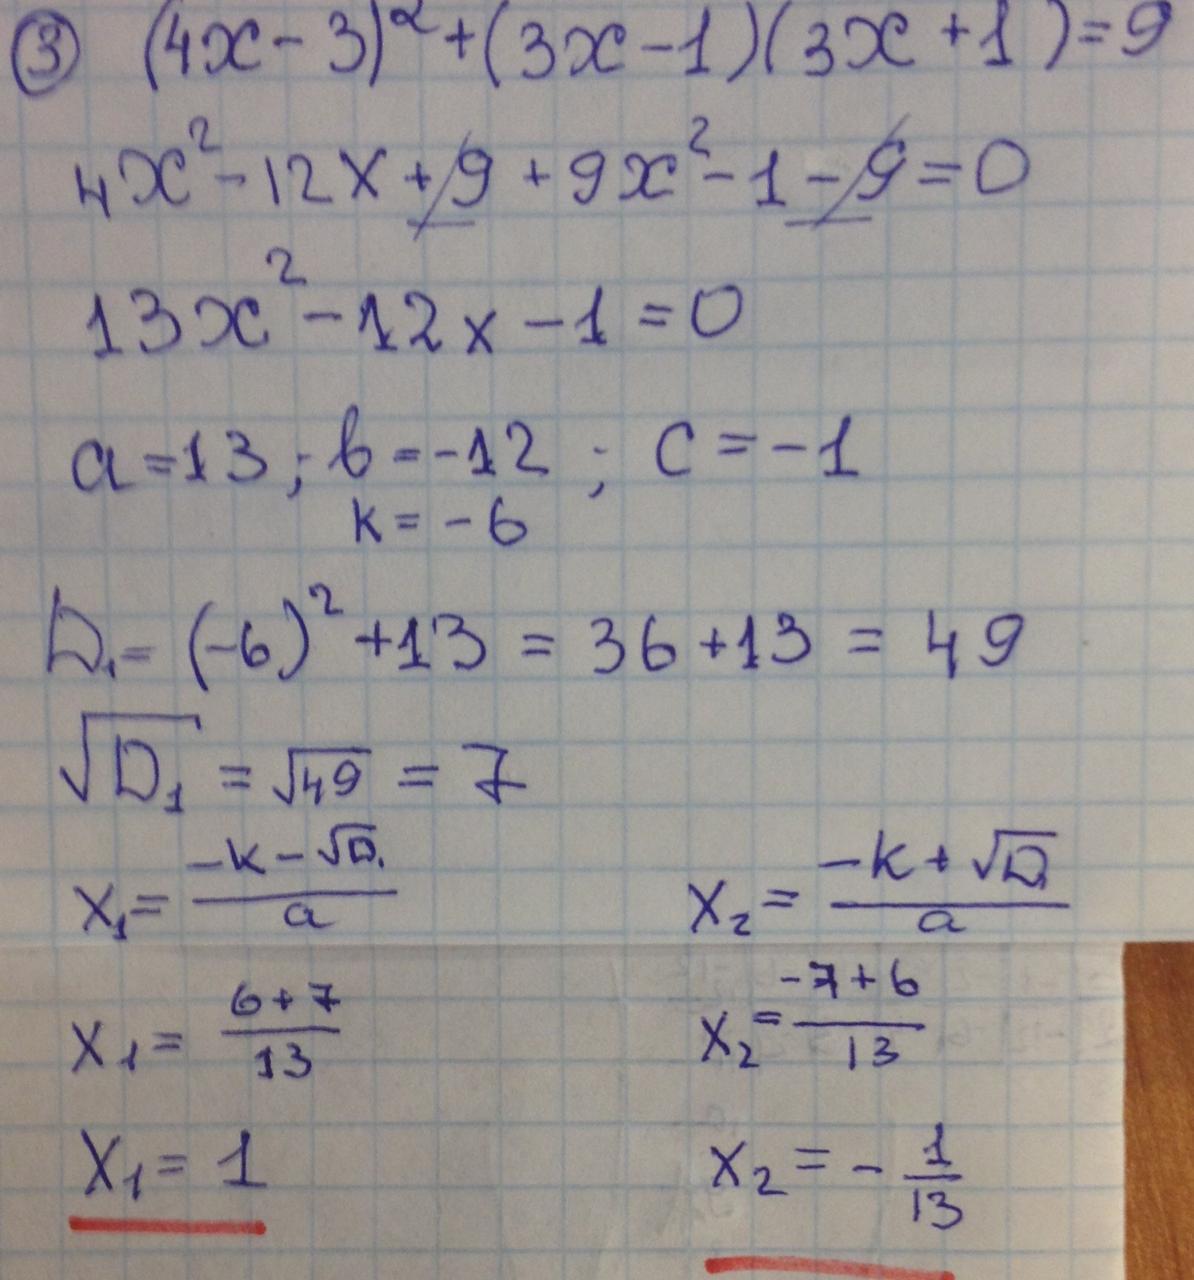 ③ (4x-3)²+(3x-1)(3x+1)=9
4x²-12x+9+9x²-1-9=0
13x²-12x-1=0
a=13; b=-12; c=-1
k=-6
D₁=(-6)²+13=36+13=49
√D₁=√49=7
x₁=(-k-√D₁)/a x₂=(-k+√D₁)/a
x₁=(6+7)/13 x₂=(-7+6)/13
x₁=1 x₂=-1/13